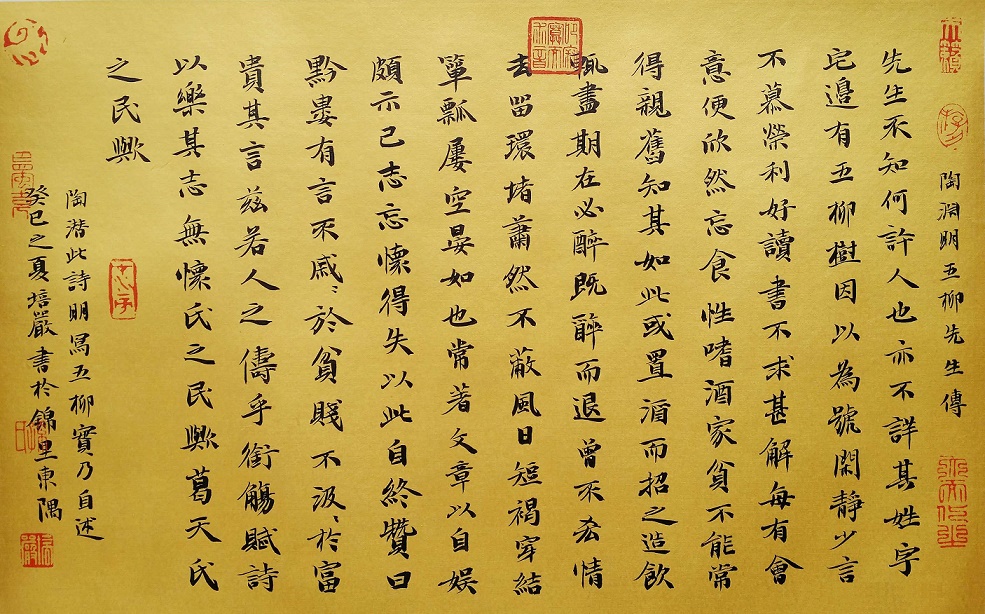 陶淵明五柳先生傳
先生不知何許人也亦不詳其姓字
宅邉有五柳樹因以為號閑靜少言
不慕榮利好讀書不求甚解每有會
意便欣然忘食性嗜酒家貧不能常
得親舊知其如此或置酒而招之造飲
輒盡期在必醉既醉而退曾不吝情
去留環堵蕭然不蔽風日短褐穿結
簞瓢屢空晏如也常著文章以自娱
頗示己志忘懷得失以此自終贊曰
黔婁有言不戚〻於貧賤不汲〻於富
貴其言兹若人之儔乎銜觴賦詩
以樂其志無懷氏之民歟葛天氏
之民歟
陶潜此詩明寫五柳實乃自述
癸巳之夏培嚴書於錦里東隅